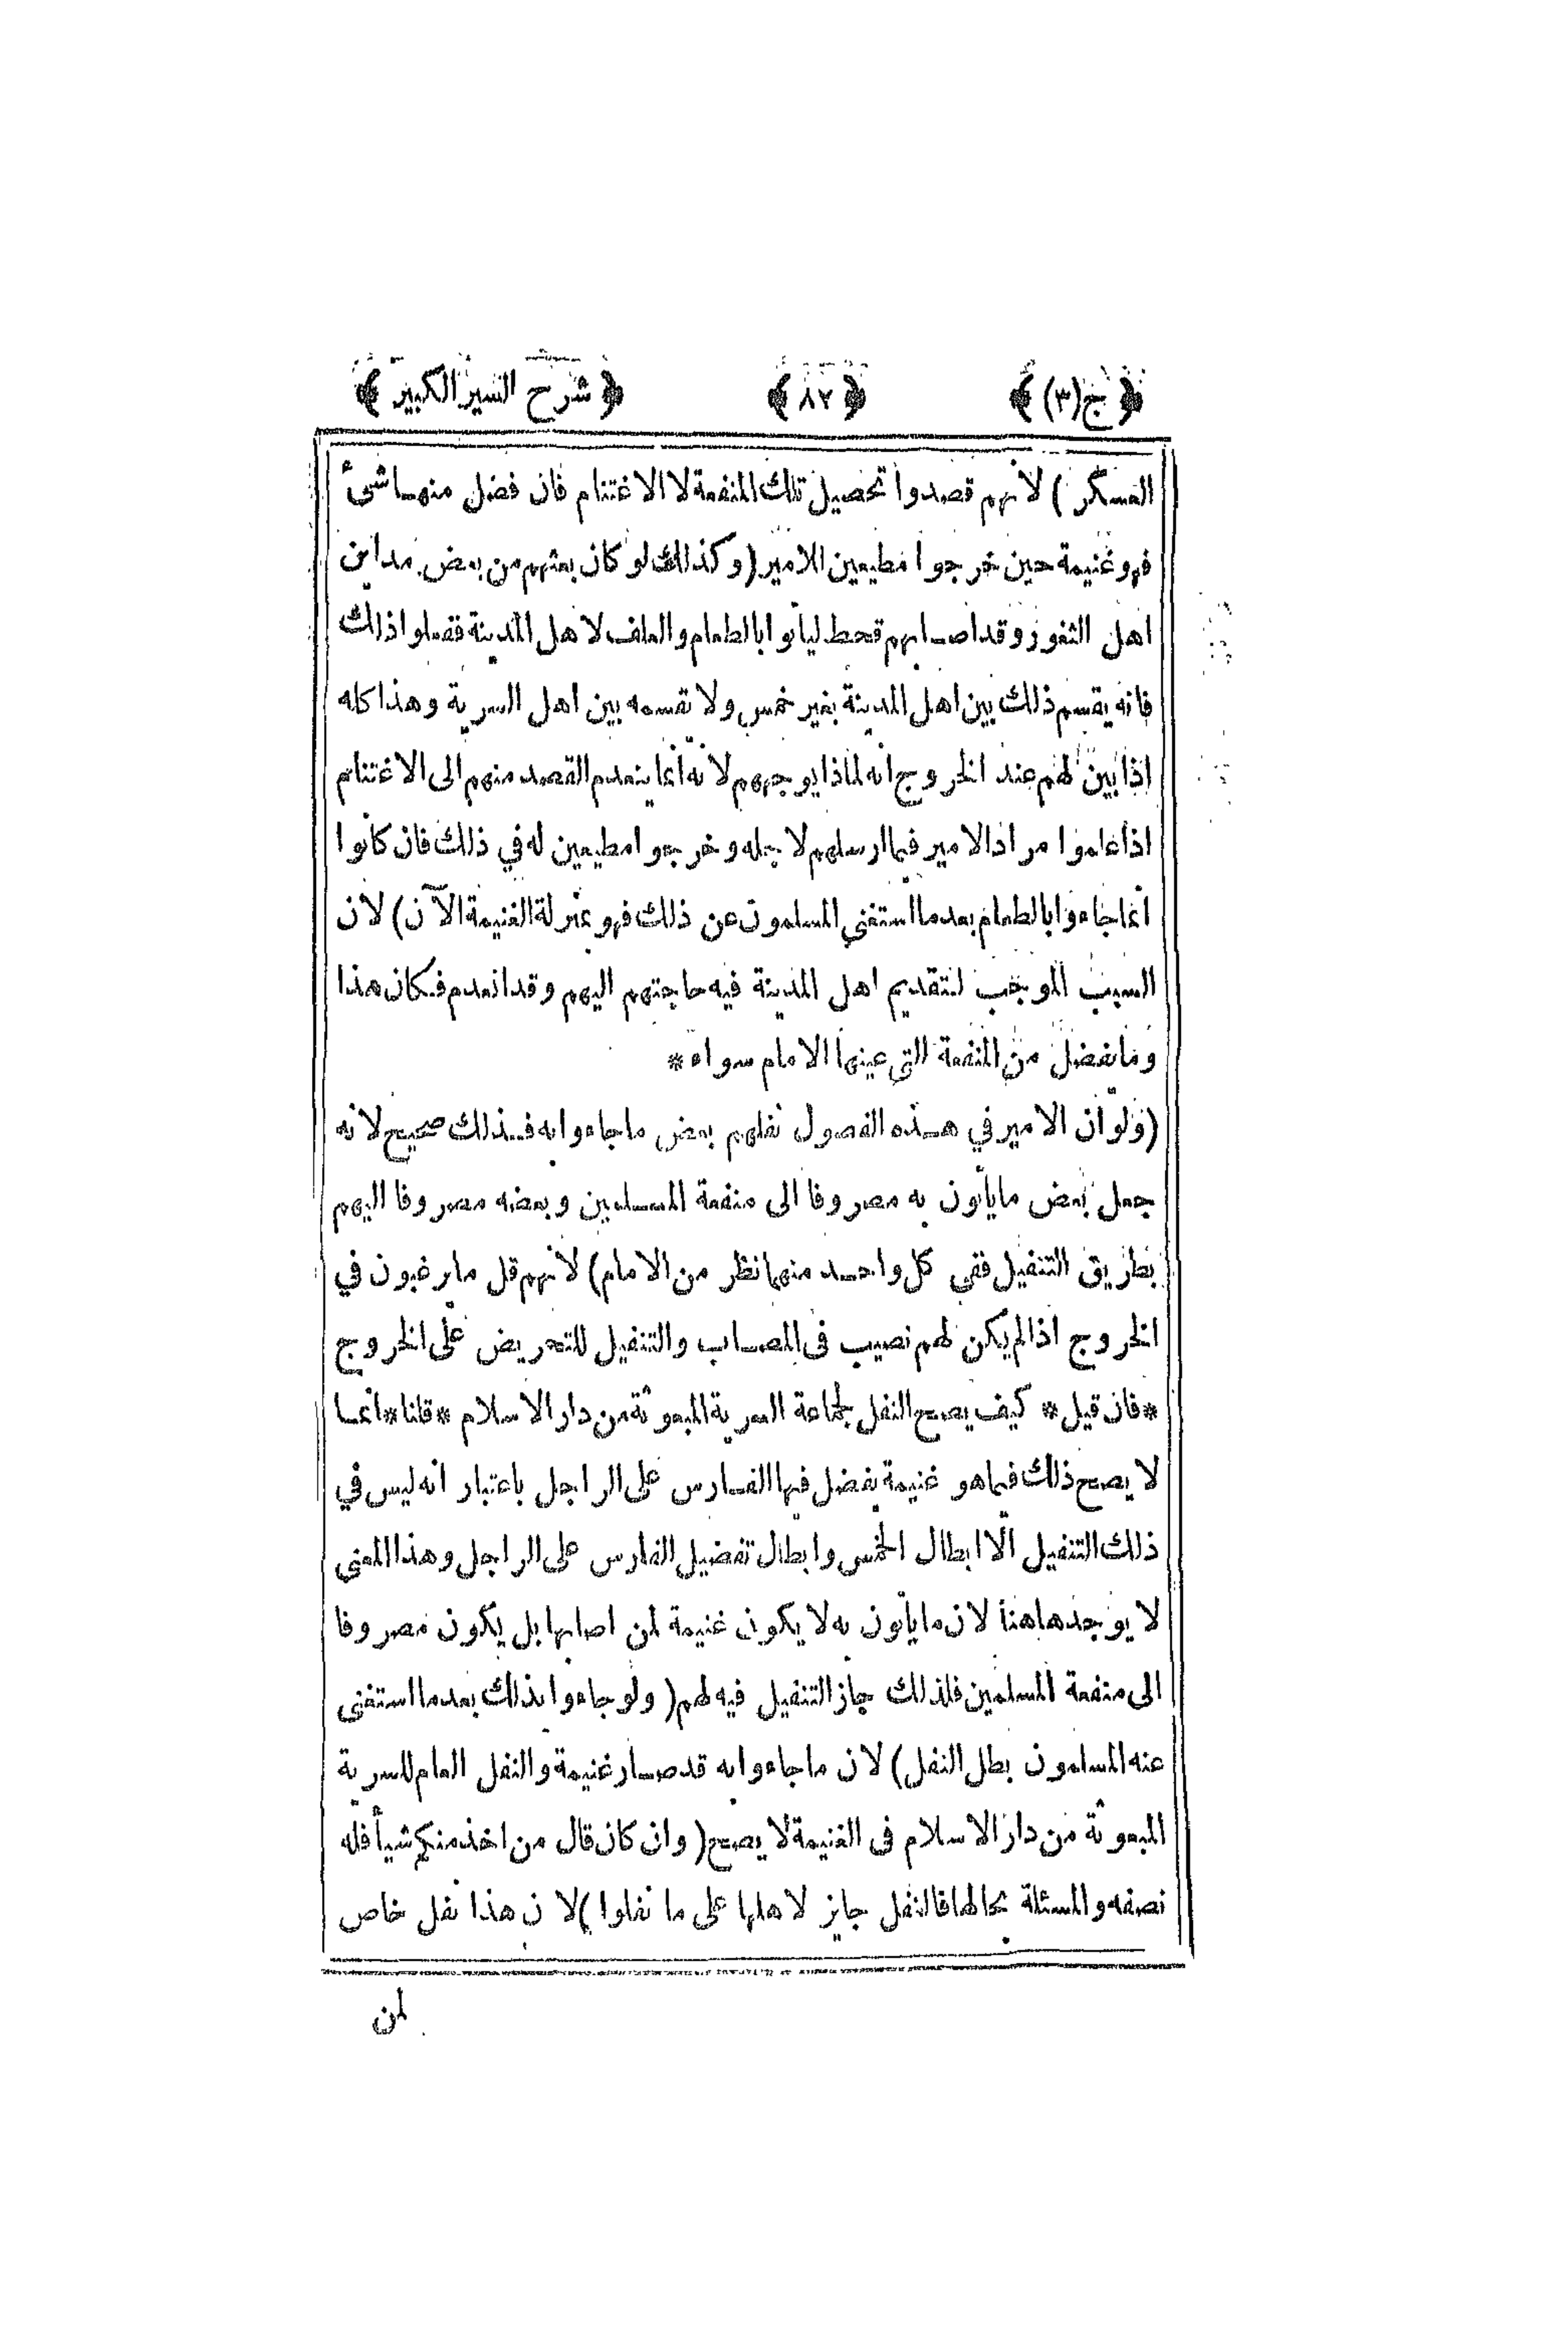 ﴿ ج(٣) ﴾ ﴿ ٨٢ ﴾ ﴿ شرح السير الكبير ﴾
العسكر ) لانهم قصدوا تحصيل تلك المنفعة لا الاغتنام فان فضل منها شئ
فهو غنيمة حين خرجوا مطيعين للامير ( وكذلك لو كان بعثهم من بعض مداين
اهل الثغور وقد اصابهم قحط ليأتوا بالطعام والعلف لاهل المدينة ففعلوا ذلك
فانه يقسم ذلك بين اهل المدينة بغير خمس ولا تقسمه بين اهل السرية وهذا كله
اذا بين لهم عند الخروج انه لماذا يوجههم لانه انما ينعدم القصد منهم الى الاغتنام
اذا علموا مراد الامير فيما ارسلهم لاجله وخرجوا مطيعين له في ذلك فان كانوا
انما جاءوا بالطعام بعد ما استغنى المسلمون عن ذلك فهو بمنزلة الغنيمة الآن ) لان
السبب الموجب لتقديم اهل المدينة فيه حاجتهم اليهم وقد انعدم فكان هذا
وما يفضل من المنفعة التي عينها الامام سواء *
( ولو ان الامير في هذه الفصول نفلهم بعض ما جاءوا به فذلك صحيح لانه
جعل بعض ما يأتون به مصروفا الى منفعة المسلمين وبعضه مصروفا اليهم
بطريق التنفيل ففى كل واحد منهما نظر من الامام ) لانهم قل ما يرغبون في
الخروج اذا لم يكن لهم نصيب فى المصاب والتنفيل للتحريض على الخروج
* فان قيل * كيف يصح النفل لجماعة السرية المبعوثة من دار الاسلام * قلنا * انما
لا يصح ذلك فيما هو غنيمة يفضل فيها الفارس على الراجل باعتبار انه ليس في
ذلك التنفيل الا ابطال الخمس وابطال تفضيل الفارس على الراجل وهذا المعنى
لا يوجد هاهنا لان ما يأتون به لا يكون غنيمة لمن اصابها بل يكون مصروفا
الى منفعة المسلمين فلذلك جاز التنفيل فيه لهم ( ولو جاءوا بذلك بعد ما استغنى
عنه المسلمون بطل النفل ) لان ما جاءوا به قد صار غنيمة والنفل العام للسرية
المبعوثة من دار الاسلام فى الغنيمة لا يصح ( وان كان قال من اخذ منكم شيأ فله
نصفه والمسئلة بحالها فالنفل جايز لاهلها على ما نفلوا ) لان هذا نفل خاص
لمن